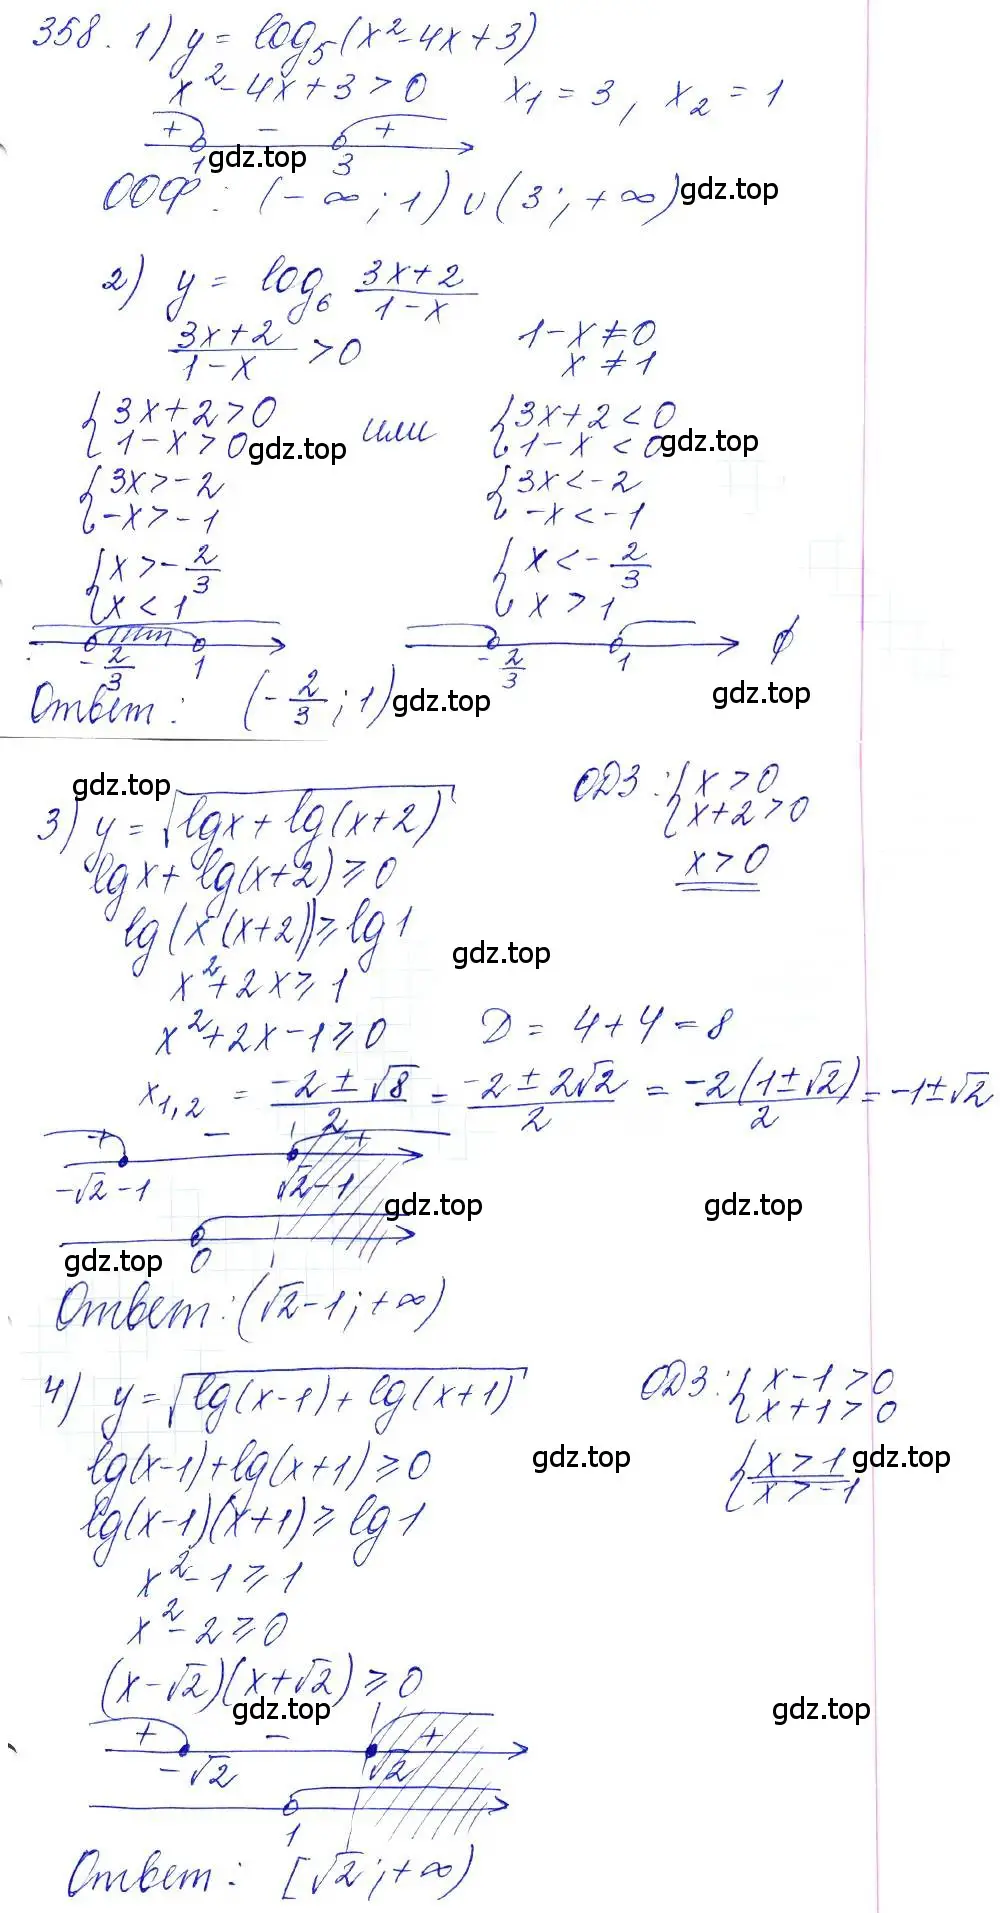 358. 1) y = log₅(x² - 4x + 3)
x² - 4x + 3 > 0    x₁ = 3, x₂ = 1
+ - +
1 gdz.top 3
ООФ: (-∞; 1) ∪ (3; +∞) gdz.top
2) y = log₆ (3x+2)/(1-x)
(3x+2)/(1-x) > 0    1-x ≠ 0
x ≠ 1
{3x+2 > 0    или    {3x+2 < 0
{1-x > 0 gdz.top    {1-x < 0 gdz.top
{3x > -2    {3x < -2
{-x > -1    {-x < -1
{x > -2/3    {x < -2/3
{x < 1    {x > 1
-2/3 1    -2/3 1 ∅
Ответ: (-2/3; 1) gdz.top    gdz.top
gdz.top    ОДЗ: {x > 0
3) y = √(lgx + lg(x+2))    {x+2 > 0
lgx + lg(x+2) ≥ 0    x > 0
lg(x(x+2)) ≥ lg1
gdz.top
x² + 2x ≥ 1
x² + 2x - 1 ≥ 0    D = 4 + 4 = 8
x₁,₂ = (-2 ± √8)/2 = (-2 ± 2√2)/2 = (-2(1 ± √2))/2 = -1 ± √2
+ - +
-√2 - 1    √2 - 1
gdz.top    gdz.top
0
gdz.top
Ответ: (√2 - 1; +∞)
4) y = √(lg(x-1) + lg(x+1))    ОДЗ: {x - 1 > 0
{x + 1 > 0
lg(x-1) + lg(x+1) ≥ 0    gdz.top    {x > 1 gdz.top
lg(x-1)(x+1) ≥ lg1    {x > -1
x² - 1 ≥ 1
x² - 2 ≥ 0
(x - √2)(x + √2) ≥ 0
gdz.top    gdz.top
+ - +
-√2    √2
1
Ответ: [√2; +∞)